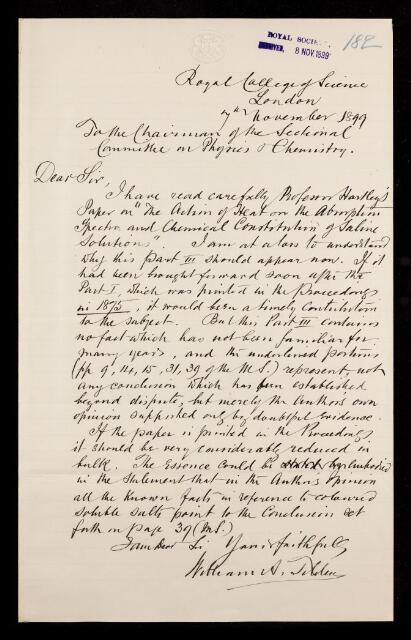 ROYAL SOCIETY
8 NOV. 1899
182
Royal College of Science
London
7th November 1899
To the Chairman of the Sectional
Committee on Physics & Chemistry.
Dear Sir,
I have read carefully Professor Hartley's
Paper on "The Action of Heat on the Absorption
Spectra and Chemical Constitution of Saline
Solutions". I am at a loss to understand
why this part III should appear now. If it
had been brought forward soon after the
Part I, which was printed in the Proceedings
in 1875, it would been a timely contribution
to the subject. But this Part III contains
no fact which has not been familiar for
many years, and the underlined portions
(pp 9, 14, 15, 31, 39 of the M.S.) represent, not
any conclusion which has been established
beyond dispute, but merely the Author's own
opinion supported only by doubtful evidence.
If the paper is printed in the Proceedings
it should be very considerably reduced in
bulk. The essence could be embodied
in the statement that in the Author's opinion
all the known facts in reference to coloured
soluble salts point to the conclusion set
forth on page 39 (M.S.)
I am Dear Sir Yours faithfully
William A. Tilden